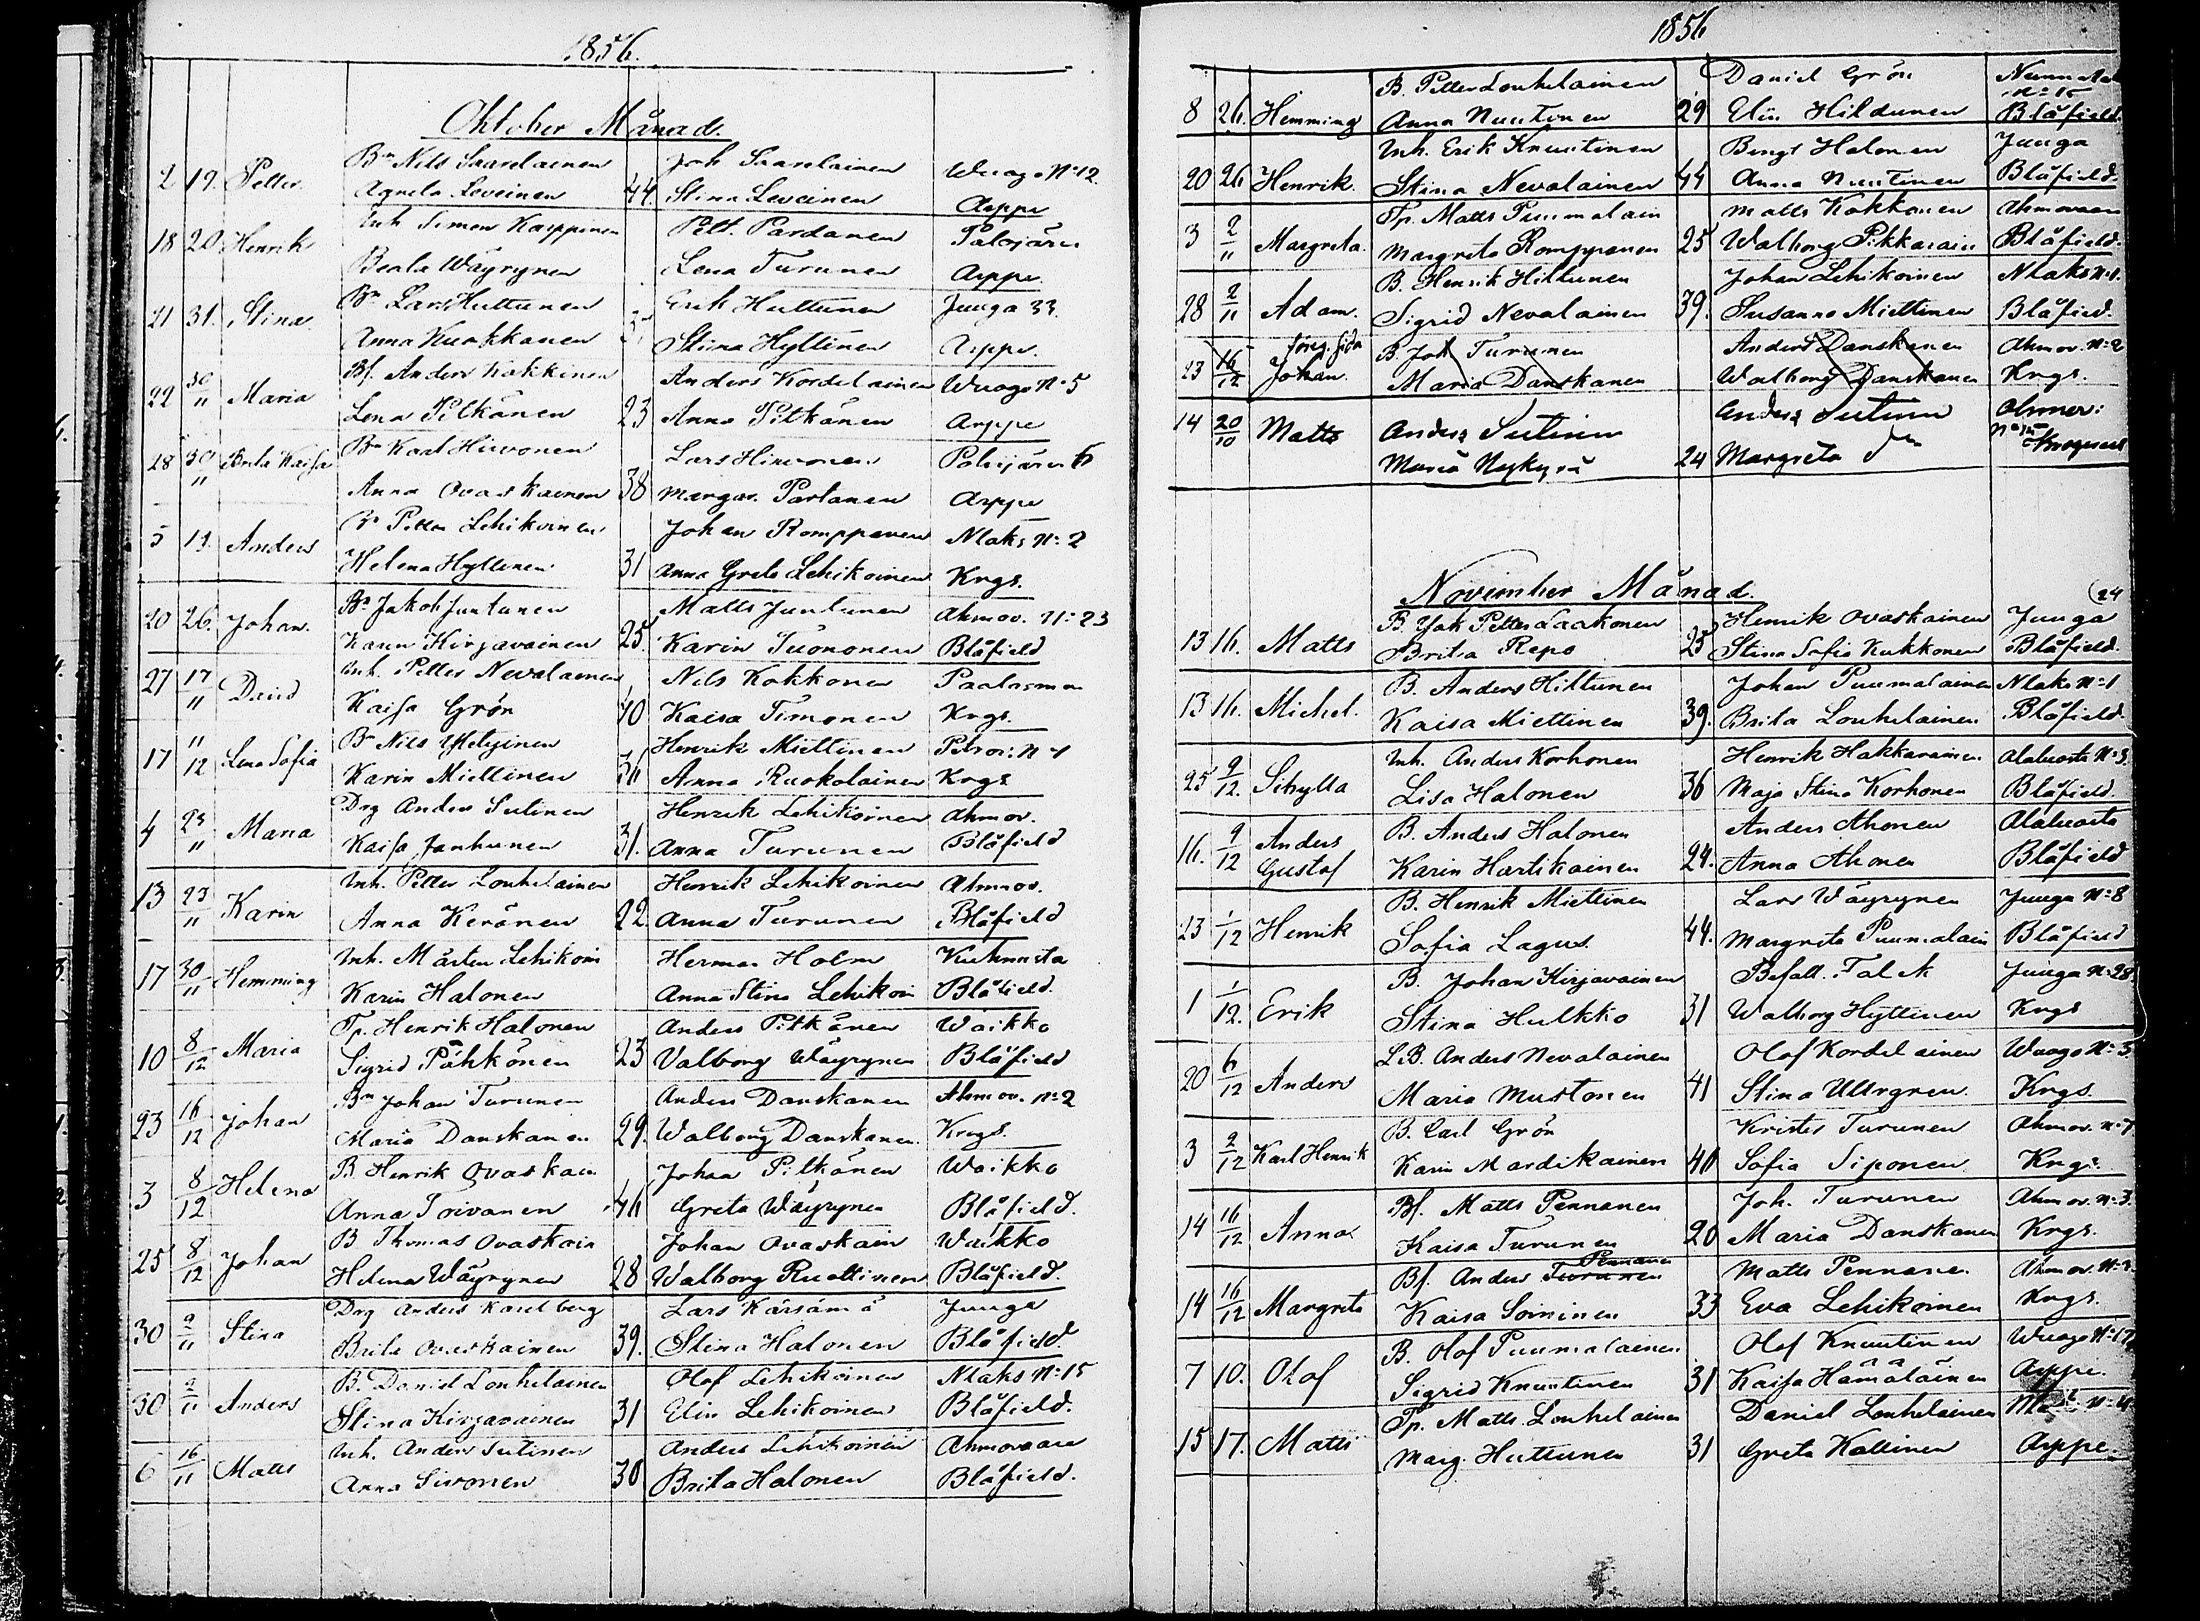 1856.
Oktober Månad.
2 19. Petter Bn Nils Saarelainen Joh Saarelainen Wuago No 12.
Agneta Leveinen 44 Stina Leveinen Arppe
18 20 Henrik Inh Simon Karppinen Pett. Pardanen Polvijärvi
Beata Wäyrynen Lena Turunen Arppe
21 31. Stina Bn Lars Huttunen Erik Huttunen Juuga 33
Anna Kuokkanen Stina Hyttinen Arppe.
22 30/11 Maria Bf. Anders Kokkinen Anders Kordelainen Wuago No 5
Lena Pitkänen 23 Anna Pitkänen Arppe
28 30/11 Brita Kaisa Bn Karl Hirvonen Lars Hirvonen Polvijärvi 6
Anna Ovaskainen 38 Margar. Partanen Arppe
5 19. Anders Bn Petter Lehikoinen Johan Romppanen Nlaks No 2
Helena Hyttinen 31 Anna Greta Lehikoinen Krgs.
20 26. Johan. Bn Jakob Juntunen Matts Juntunen Ahmov. No 23
Karin Kirjavainen 25. Karin Tuononen Blåfield
27 17/11 David Inh. Petter Nevalainen Nils Kokkonen Paalasmaa
Kaisa Grön 40 Kaisa Timonen Krgs.
17 11/12 Lena Sofia Bn Nils Henrik Miettinen
Karin Miettinen 36 Anna Ruokolainen Krgs
4 23/11 Maria Drg Anders Sutinen Henrik Lehikoinen Ahmov.
Kaisa Janhunen 31. Anna Turunen Blåfield
13 23/11 Karin Inh. Petter Louhelainen Henrik Lehikoinen Ahmov.
Anna Keränen 22 Anna Turunen Blåfield
17 30/11 Hemming Inh. Mårten Lehikoin Herman Holm Kuhnusta
Karin Halonen Anna Stina Lehikoin Blåfield.
10 8/12 Maria Tp. Henrik Halonen Anders Pitkänen Waikko
Sigrid Pähkönen 23 Valborg Wäyrynen Blåfield
23 16/12 Johan Bn Johan Turunen Anders Danskanen Ahmov. No 2
Maria Danskanen 29. Walborg Danskanen. Krgs.
3 8/12 Helena B Henrik Ovaskain Johan Pitkänen Waikko
Anna Toivanen 46 Greta Wäyrynen Blåfield.
25 8/12 Johan B. Thomas Ovaskain Johan Ovaskain Waikko
Helena Wäyrynen 28 Walborg Ruottinen Blåfield.
30 2/11 Stina Drg Anders Karelberg Lars Kärsämä Juuga
Brita Ovaskainen 39. Stina Halonen Blåfield
30 2/11 Anders B. Daniel Louhelainen Olof Lehikoinen Nlaks No 15
Stina Kirjavainen 31 Elin Lehikoinen Blåfield.
6 16/11 Matts Inh. Anders Sutinen Anders Lehikoinen Ahmovaara
Anna Sivonen 30 Brita Halonen Blåfield.
1856
8 26. Hemming B. Petter Louhelainen Daniel Grön
Anna Nuutinen 29 Elin Hildunen Blåfield.
20 26 Henrik. Inh. Erik Knuutinen Bengt Halonen Juuga
Stina Nevalainen 44 Anna Nuutinen Blåfield.
3 2/11 Margreta. Tp. Matts Puumalain Matts Kokkonen Ahmovaara
Margreta Romppanen 25 Walborg Pikkarain Blåfield.
28 2/11 Adam. B. Henrik Hiltunen Johan Lehikoinen Nlaks No 1.
Sigrid Nevalainen 39. Susanna Miettinen Blåfield.
föreg. sida
23 16/12 Johan. B. Joh Turunen Anders Danskanen Ahmov. No 2
Maria Danskanen Walborg Danskanen Krgs.
14 20/10 Matts Anders Sutinen Anders Sutinen Ahmov:
Maria Nykyri 24 Margreta
November Månad.
(24
13 16. Matts B. Joh Petter Laakonen Henrik Ovaskainen Juuga
Brita Repo 25 Stina Sofia Kukkonen Blåfield.
13 16. Michel. B. Anders Hiltunen Johan Puumalainen Nlaks No 1
Kaisa Miettinen 39. Brita Louhelainen Blåfield
25 9/12. Sibylla Inh. Anders Korhonen Henrik Hakkarainen Alaluosta No 3.
Lisa Halonen 36 Maja Stina Korhonen Blåfield.
16. 9/12 Anders Gustaf B. Anders Halonen Anders Ahonen Alaluosta
Karin Hartikainen 24. Anna Ahonen Blåfield
23 1/12 Henrik B. Henrik Miettinen Lars Wäyrynen Juuga No 8
Sofia Lagus 44. Margreta Puumalain Blåfield
1 1/12. Erik B. Johan Kirjavainen Befallt. Falck Juuga No 28
Stina Hulkko 31 Walborg Hyttinen Krgs
20 6/12 Anders L.B. Anders Nevalainen Olof Kordelainen Wuago No 5
Maria Mustonen 41 Stina Krgs.
3 2/12 Karl Henrik B. Carl Grön Krister Turunen Ahmov. No 7
Karin Mardikainen 40 Sofia Siponen Krgs.
14 16/12 Anna Bf. Matts Pennanen Joh. Turunen Ahmov. No 3.
Kaisa Turunen 20 Maria Danskanen Krgs.
Pennanen
14 16/12 Margreta Bf. Anders Turunen Matts Pennanen Ahmov. No 3
Kaisa Soininen 33 Eva Lehikoinen Krgs.
7 10. Olof B. Olof Puumalainen Olof Knuutinen Wuago No 17
Sigrid Knuutinen 31 Kaisa Hämäläinen Arppe.
15 17. Matts Tp. Matts Louhelainen Daniel Louhelainen
Marg. Huttunen 31 Greta Kattinen Arppe.